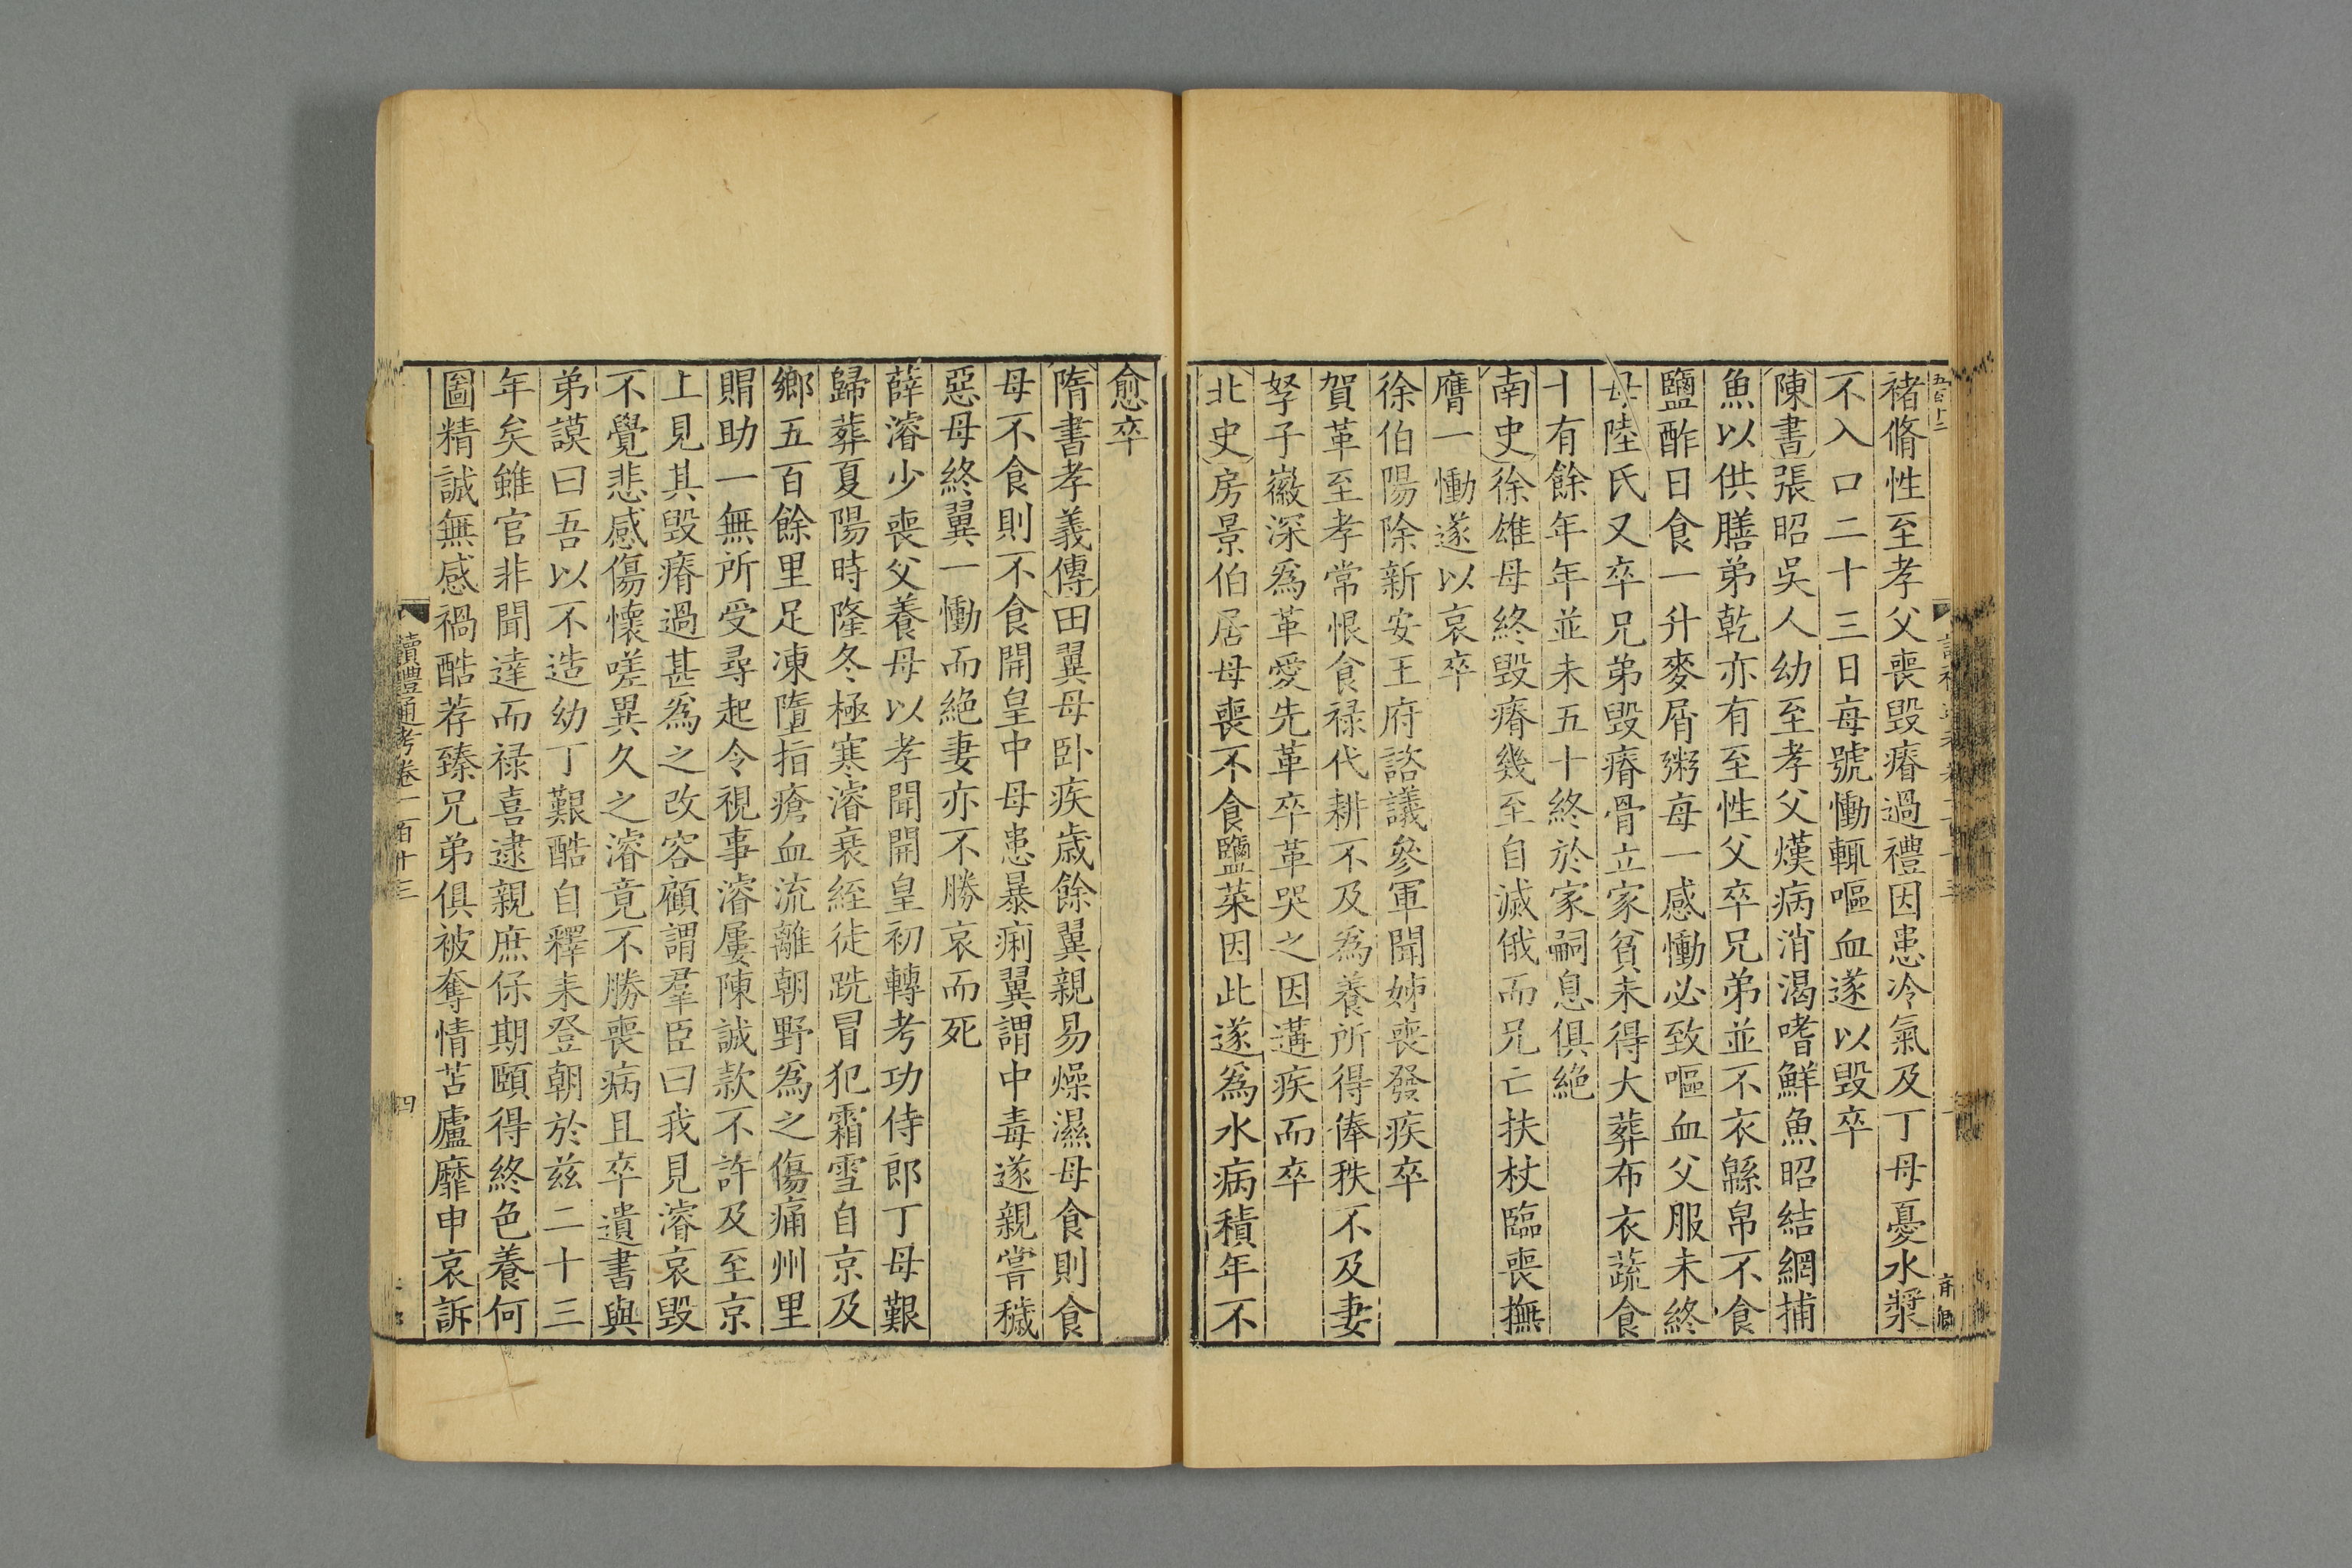 褚脩性至孝父喪毀瘠過禮因患冷氣及丁母憂水漿
不入口二十三日每號慟輒嘔血遂以毀卒
陳書張昭吳人幼至孝父熯病消渴嗜鮮魚昭結網捕
魚以供膳弟乾亦有至性父卒兄弟並不衣緜帛不食
鹽酢日食一升麥屑粥每一感慟必致嘔血父服未終
母陸氏又卒兄弟毀瘠骨立家貧未得大葬布衣蔬食
十有餘年年並未五十終於家嗣息俱絕
南史徐雄母終毀瘠幾至自滅俄而兄亡扶杖臨喪撫
膺一慟遂以哀卒
徐伯陽除新安王府諮議參軍聞姊喪發疾卒
賀革至孝常恨食祿代耕不及為養所得俸秩不及妻
孥子徽深為革愛先革卒革哭之因遘疾而卒
北史房景伯居母喪不食鹽菜因此遂為水病積年不
愈卒
隋書孝義傳田翼母卧疾歲餘翼親易燥濕母食則食
母不食則不食開皇中母患暴痢翼謂中毒遂親嘗穢
惡母終翼一慟而絶妻亦不勝哀而死
薛濬少喪父養母以孝聞開皇初轉考功侍郎丁母艱
歸葬夏陽時隆冬極寒濬衰絰徒跣冒犯霜雪自京及
鄉五百餘里足凍墮指瘡血流離朝野為之傷痛州里
賵助一無所受尋起令視事濬屢陳誠款不許及至京
上見其毀瘠過甚為之改容顧謂羣臣曰我見濬哀毀
不覺悲感傷懷嗟異久之濬竟不勝喪病且卒遺書與
弟謨曰吾以不造幼丁艱酷自釋耒登朝於兹二十三
年矣雖官非聞達而祿喜逮親庶保期頤得終色養何
圖精誠無感禍酷荐臻兄弟俱被奪情苫廬靡申哀訴
讀禮通考卷一百十三
四